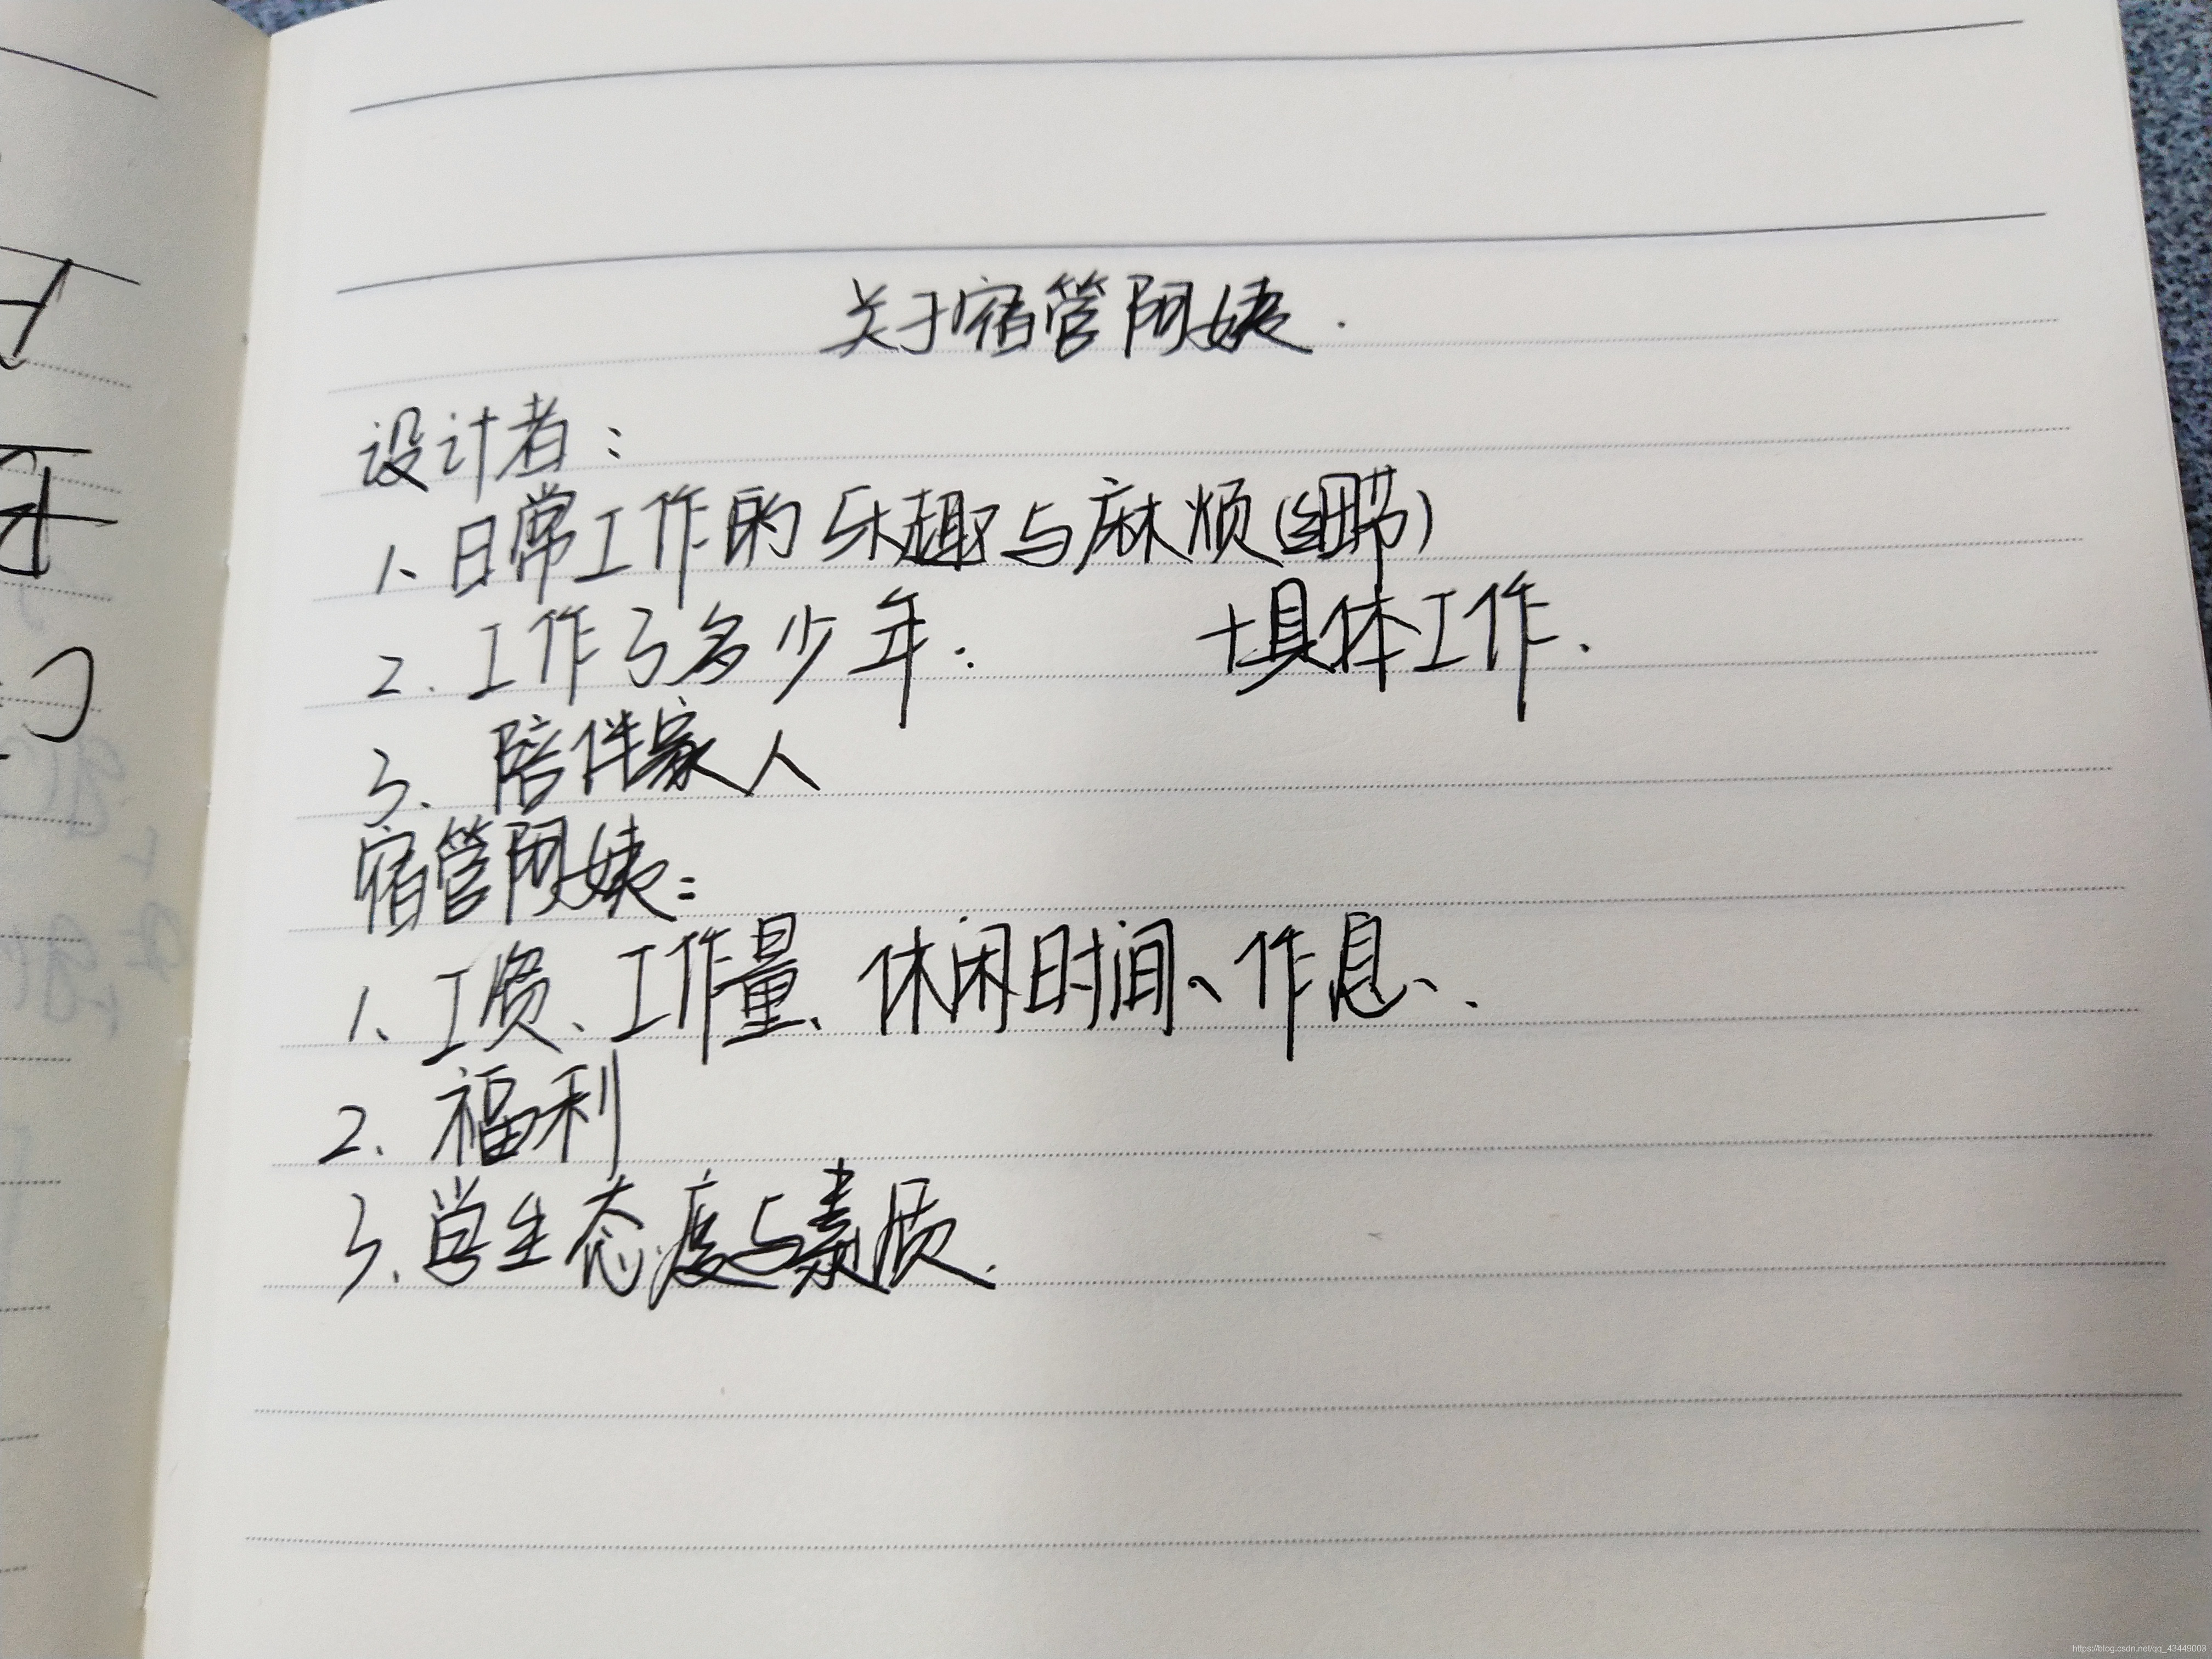 关于宿管阿姨.
设计者：
1、日常工作的乐趣与麻烦(细节)
2. 工作了多少年. +具体工作.
3. 陪伴家人
宿管阿姨：
1、工资、工作量、休闲时间、作息、.
2. 福利
3. 学生态度与素质.
https://blog.csdn.net/qq_43449003